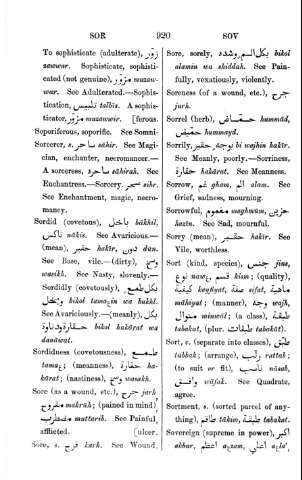 SOR 920 SOV
To sophisticate (adulterate), زوّر
zawwar. Sophisticate, sophisti-
cated (not genuine), مزوّر muzaw-
war. See Adulterated.—Sophis-
tication, تلبيس talbís. A sophis-
ticator, مزوّر muzawwir. [ferous.
Soporiferous, soporific. See Somni-
Sorcerer, s. ساحر sáḥir. See Magi-
cian, enchanter, necromancer.—
A sorceress, ساحره sáḥirah. See
Enchantress.—Sorcery. سحر siḥr.
See Enchantment, magic, necro-
mancy.
Sordid (covetous), باخل bákhil,
ناكس nákis. See Avaricious.—
(mean), حقير ḥakír, دون dún.
See Base, vile.—(dirty), وسخ
wasikh. See Nasty, slovenly.—
Sordidly (covetously), بكل طمع
bikol wa bukhl.
See Avariciously.—(meanly), بكل
bikol ḥakárat wa
danáwat.
Sordidness (covetousness), طمع
(meanness), حقارة ḥa-
kárat; (nastiness), وسخ wasakh.
Sore (as a wound, etc.), جرح jarḥ
مجروح makrúḥ; (pained in mind)
muttarib. See Painful,
afflicted. [ulcer.
Sore, s. قرح karḥ. See Wound,
Sore, sorely, بكل الم وشدد bikol
alamin wa shiddah. See Pain-
fully, vexatiously, violently.
Soreness (of a wound, etc.), جرح
jarḥ.
Sorrel (herb), حماض hummád,
حميض hummayd.
Sorrily, بوجه حقير bi wajhin ḥakír.
See Meanly, poorly.—Sorriness,
حقارة ḥakárat. See Meanness.
Sorrow, غم gham, الم alam. See
Grief, sadness, mourning.
Sorrowful, مغموم maghmúm, حزين
hazín. See Sad, mournful.
Sorry (mean), حقير ḥakír. See
Vile, worthless.
Sort (kind, species), جنس jins,
نوع قسم kism; (quality),
كيفية kayfíyat, صفة sifat, ماهية
máhíyat; (manner), وجه wajh,
منوال minwál; (a class), طبقة
tabakat, (plur. طبقات tabakát).
Sort, v. (separate into classes), طبق
tabbak; (arrange), رتّب rattab;
(to suit or fit), ناسب násab,
وافق wáfak. See Quadrate,
agree.
Sortment, s. (sorted parcel of any-
thing), طاقم tákim, طبقة tabakat.
Sovereign (supreme in power), اكبر
akbar, اعظم اعلي